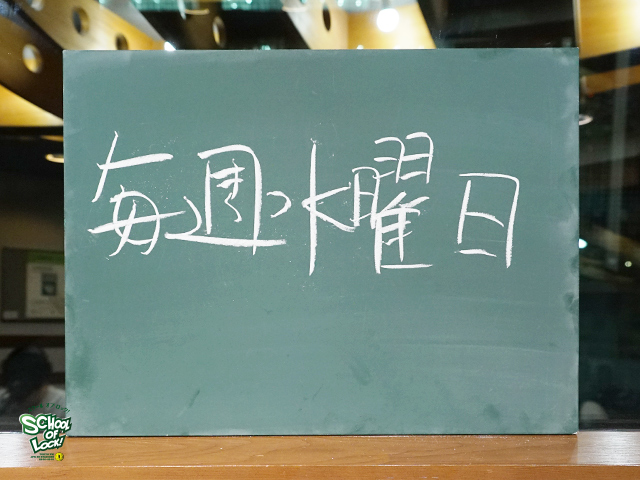 毎週水曜日
SCHOOL
OF
LOCK!